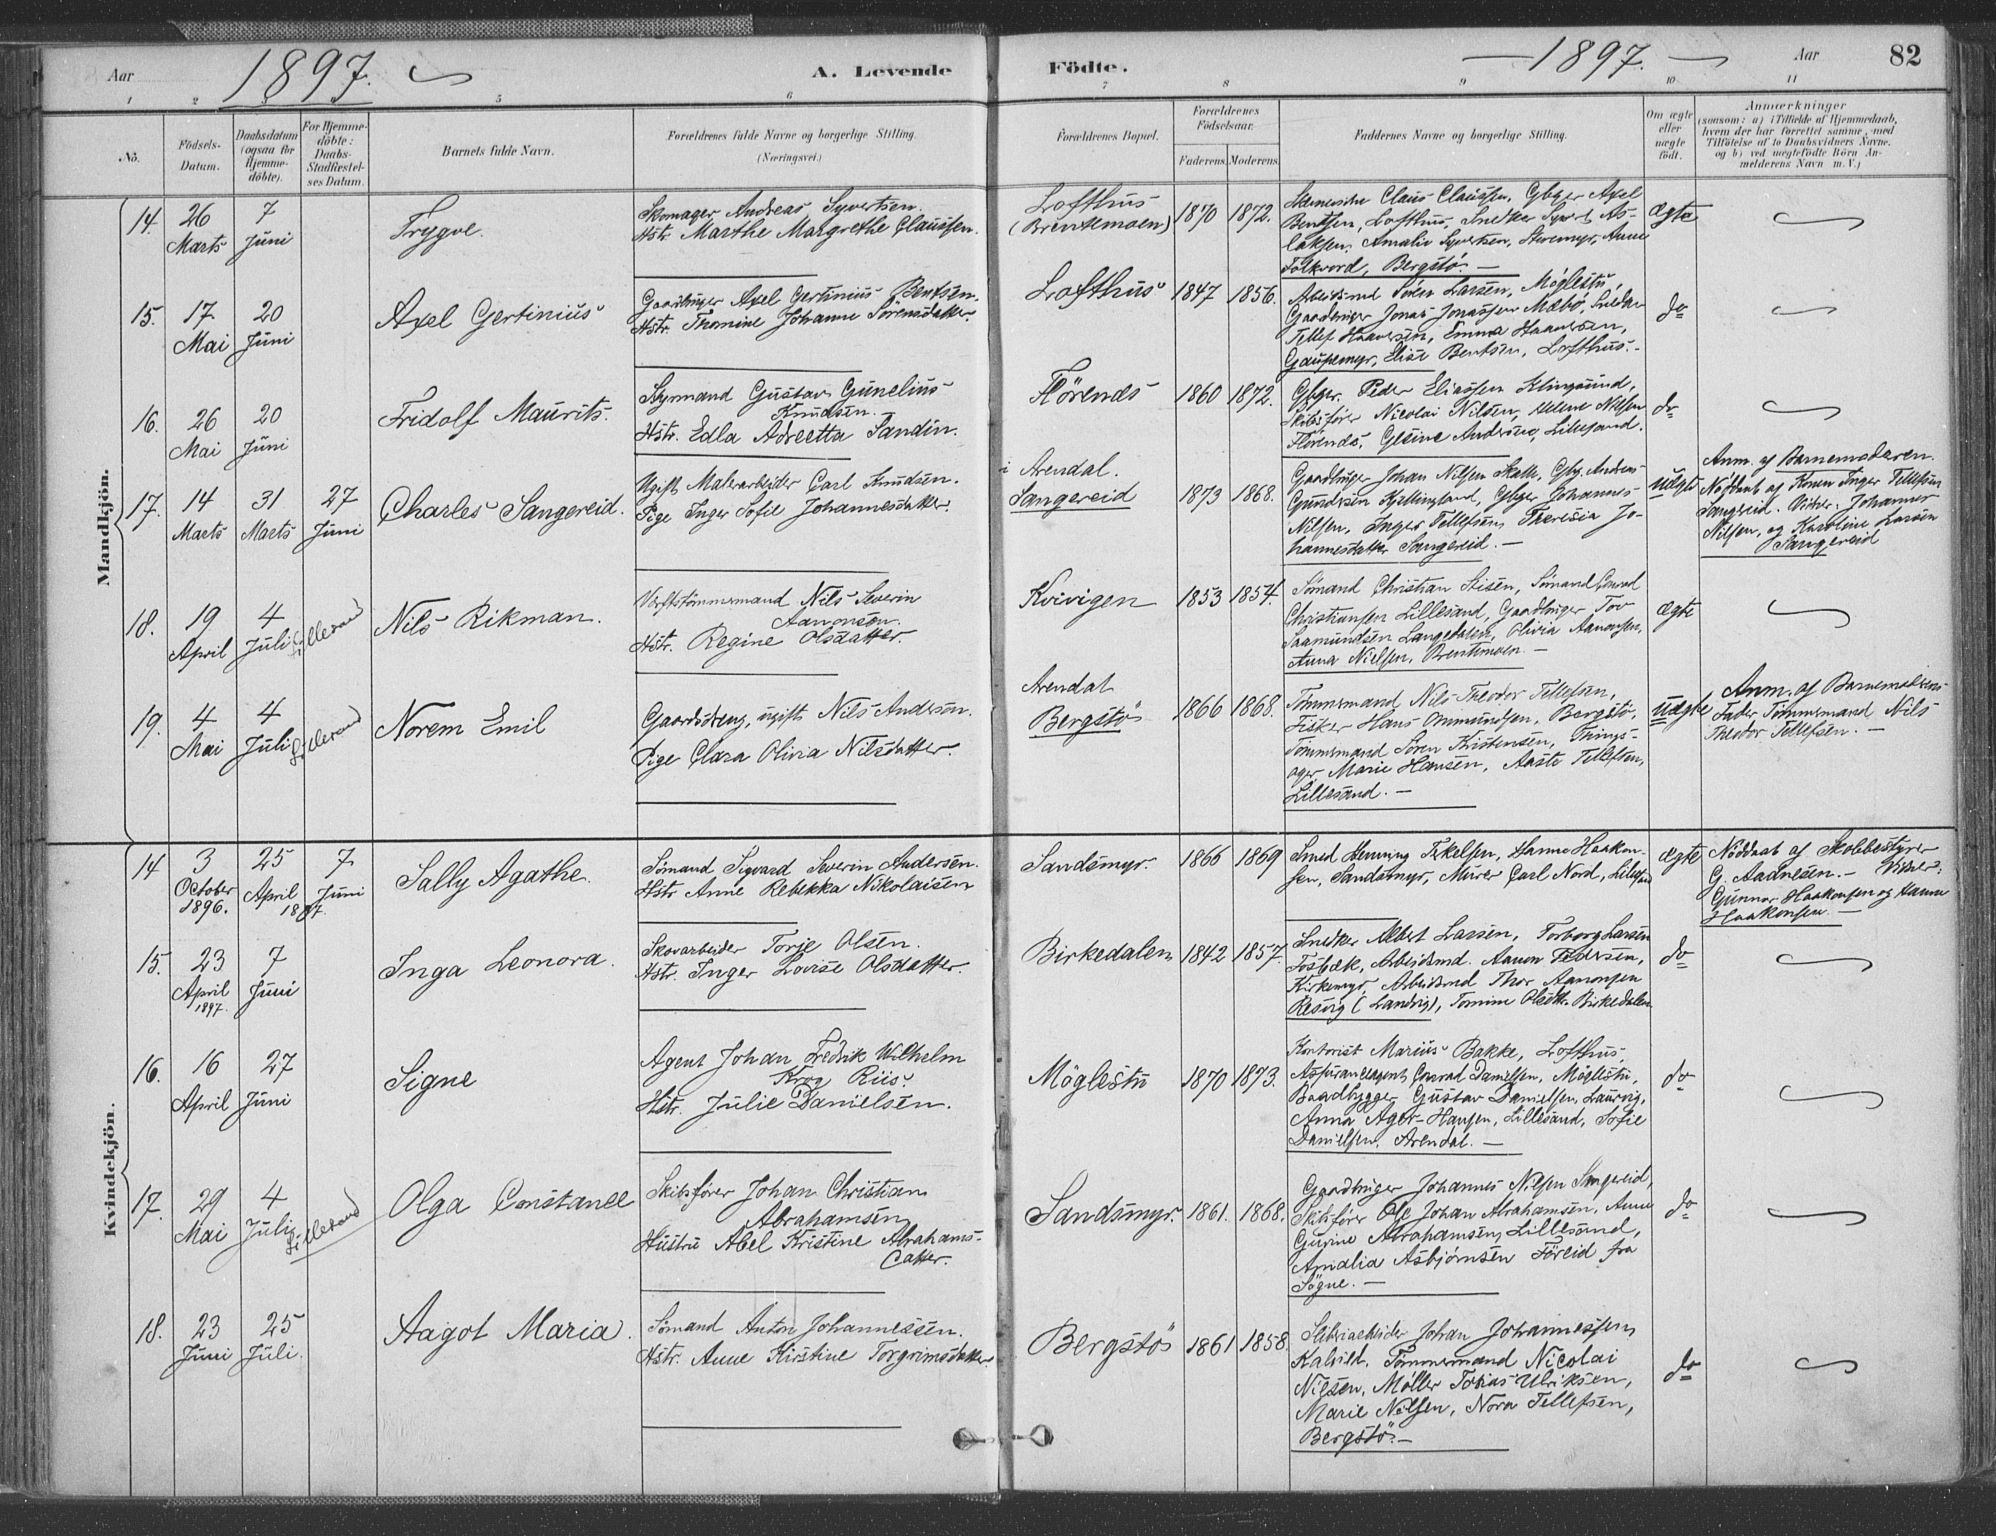 Aar 1897. A. Levende Födte. 1897. Aar 82
1 2 3 5 6 7 8 9 10 11
No.
Födsels-
Datum.
Daabsdatum
(ogsaa for
Hjemme-
döbte).
For Hjemme-
döbte:
Daabs-
Stadfæstel-
ses Datum.
Barnets fulde Navn.
Forældrenes fulde Navne og borgerlige Stilling.
(Næringsvei.)
Forældrenes Bopæl.
Forældrenes
Födselsaar.
Faderens. Moderens.
Faddernes Navne og borgerlige Stilling.
Om ægte
eller
uægte
födt.
Anmærkninger
(saasom: a) i Tilfælde af Hjemmedaab,
hvem der har forrettet samme, med
Tilföielse af to Daabsvidners Navne.
og b) ved uægtefödte Börn An-
melderens Navn m. V.)
Mandkjön.
14.
26
Marts
7
Juni
Trygve.
Skomager Andreas Syvertsen.
Hstr. Marthe Margrethe Claussen.
Lofthus
(Brentemoen)
1870 1872.
Claus Claussen, Gbgr Axel
Bentsen, Lofthus, Snedker Syvert As-
laksen, Amalie Syvertsen, Anne
Folkvord, Bergstö. —
ægte
15.
17
Mai
20
Juni
Axel Gertinius
Gaardbruger Axel Gertinius Bentsen.
Hstr. Thomine Johanne Sörensdatter.
Lofthus
1847 1856.
Arbeidsmd Sören Larsen, Möglestu,
Gaardbruger Jonas Jonassen Mæbö, Snedker
Tellef Haaversen, Emma Haaversen,
Gaupemyr, Elise Bentsen, Lofthus.
do
16.
26
Mai
20
Juni
Fridolf Maurits
Styrmand Gustav Gunelius
Knudsen.
Hstr. Edla Adreetta Sandin.
Flörenes
1860 1872.
Gbgr. Peder Eliassen Klingsund,
Skibsförer Nicolai Nilsen, Helene Nilsen
Flörenes, Gesine Andersen, Lillesand.
do
17.
14
Marts
31
Marts
27
Juni
Charles Sangereid.
Ugift Malerarbeider Carl Knudsen.
Pige Inger Sofie Johannesdatter.
Arendal.
Sangereid
1873 1868.
Gaardbruger Johan Nilsen Gbg. Andreas
Gundersen Gbger Johannes
Nilsen, Inger Tellefsen, Theresia Jo-
hannesdatter Sangereid. —
uægte
Anm. af Barnemoderen.
Nöddöbt af Konen Inger Tellefsen
Sangereid. Vidner: Johannes
Nilsen, og Karoline Larsen
Sangereid
18.
19
April
4
Juli
Lillesand
Nils Rikman.
Værftstömmermand Nils Severin
Aanonsen.
Hstr. Regine Olsdatter.
Kvivigen
1853 1854.
Sömand Christian Sömand Conrad
Christiansen Lillesand, Gaardbruger Tov
Saamundsen Langedalen, Olivia Aanonsen,
Anna Nielsen, Brentemoen. —
ægte
19.
4
Mai
4
Juli
Lillesand
Norem Emil
Gaardsdreng, ugift Nils Andersen.
Pige Clara Olivia Nilsdatter.
Arendal
Bergstö
1866 1868.
Tömmermand Nils Theodor Tellefsen,
Fisker Hans Ommundsen, Bergstö,
Tömmermand Sören Kristensen, Things-
ager, Marie Hansen, Aaste Tellefsen,
Lillesand. —
uægte
Anm. af Barnemoderens
Fader Tömmermand Nils
Theodor Tellefsen. —
Kvindekjön.
14
3
October
1896.
25
April
1897.
7
Juni
Sally Agathe.
Sömand Sigvard Severin Andersen.
Hstr. Anne Rebekka Nikolaisen
Sandsmyr.
1866 1869
Smed Henning Terkelsen, Hanna Haakon-
sen, Sandsmyr, Murer Carl Nord, Lillesand
ægte
Nöddöbt af Skolebestyrer
G. Aadnesen. — Vidner:
Gunnar Haakonsen og Hanna
Haakonsen. —
15.
23
April
1897.
7
Juni
Inga Leonora.
Skovarbeider Torje Olsen.
Hstr. Inger Lovise Olsdatter.
Birkedalen
1842 1857.
Snedker Albert Larsen, Torborg Larsen
Fosbæk, Arbeidsmd. Aanon Pedersen,
Kirkemyr, Arbeidsmd Thor Aanonsen
Resvig (Landvig), Tomine Olsdtr. Birkedalen
do
16.
16
April
27
Juni
Signe
Agent Johan Fredrik Wilhelm
Krog Riis.
Hstr. Julie Danielsen.
Möglestu
1870 1873.
Kontorist Marius Bakke, Lofthus,
Assuranceagent Conrad Danielsen, Möglestu,
Baadbygger Gustav Danielsen, Laurvig,
Anna Ager-Hansen, Lillesand, Sofie
Danielsen, Arendal. —
do
17.
29
Mai
4
Juli
Lillesand
Olga Constance
Skibsförer Johan Christian
Abrahamsen
Hustru Abel Kristine Abrahams-
datter.
Sandsmyr.
1861. 1868.
Gaardbruger Johannes Nilsen Sangereid,
Skibsförer Ole Johan Abrahamsen, Anne
Gurine Abrahamsen, Lillesand,
Amalia Asbjörnsen Föreid fra
Sögne. —
do
18.
23
Juni
25
Juli.
Aagot Maria.
Sömand Anton Johannessen.
Hstr. Anne Kirstine Torgrimsdatter
Bergstö
1861 1858.
Johan Johannessen
Kalvild, Tömmermand Nicolai
Nilsen, Möller Tobias Ulriksen,
Marie Nilsen, Nora Tellefsen,
Bergstö. —
do